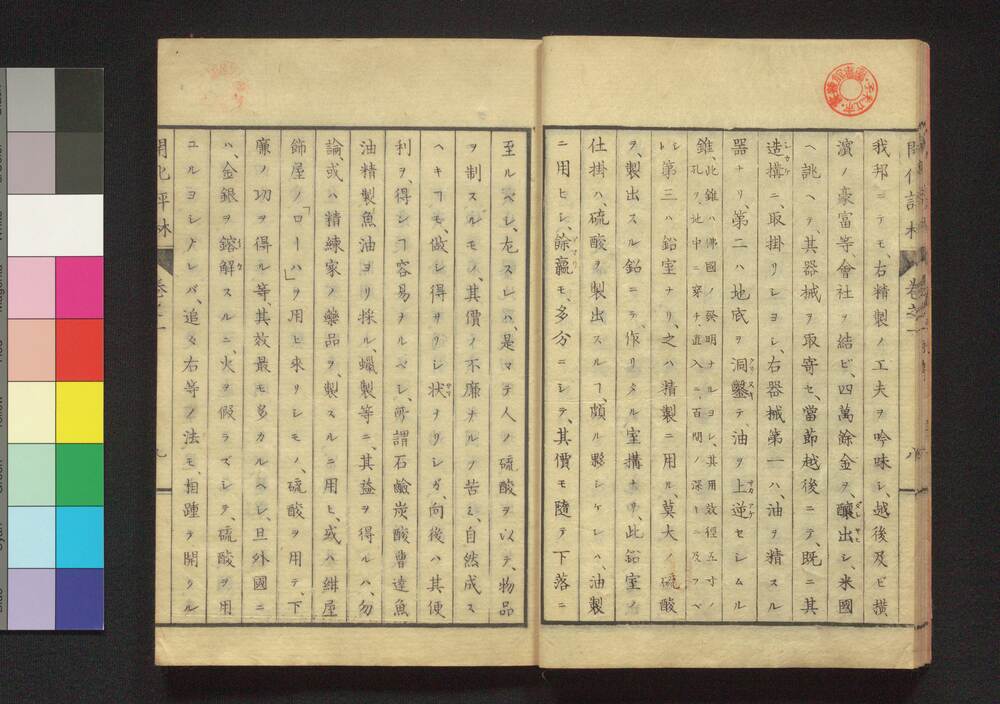 我邦ニテモ、右精製ノ工夫ヲ吟味シ、越後及ビ横
濱ノ豪富等、會社ヲ結ビ、四萬餘金ヲ、釀出シ、米國
ヘ誂ヘテ、其器械ヲ取寄セ、當節越後ニテ、既ニ其
造構ニ、取掛リシヨシ、右器械第一ハ、油ヲ精スル
器ナリ、第二ハ地底ヲ洞鑿テ、油ヲ上逆セシムル
錐、此錐ハ佛國ノ發明ナルヨシ、其用效徑五寸ノ
孔ヲ地中ニ穿チ、直入ニ、百間ノ深ーニ及フベ
シ、第三ハ鉛室ナリ、之ハ精製ニ用ル、莫大ノ硫酸
ヲ、製出スル鉛ニテ、作リタル室構ナリ、此鉛室ノ
仕掛ハ、硫酸ヲ製出スルヿ、頗ル夥シケレハ、油製
ニ用ヒシ、餘羸モ、多分ニシテ、其價モ隨テ下落ニ
至ルベシ、左スレハ、是マテ人ノ硫酸ヲ以テ、物品
ヲ制スルモノ、其價ノ不廉ナルノ苦ミ、自然成ス
ヘキヿモ、做シ得サリシ状ナリシガ、向後ハ其便
利ヲ、得ンヿ容易ナルベシ、所謂石鹼炭酸曹達魚
油精製魚油ヨリ採ル、蠟製等ニ、其益ヲ得ルハ、勿
論、或ハ精練家ノ藥品ヲ、製スルニ用ヒ、或ハ紺屋
飾屋ノ「ローハ」ヲ用ヒ來リシモノ、硫酸ヲ用テ、下
廉ノ功ヲ得ル等、其效最モ多カルヘシ、且外國ニ
ハ、金銀ヲ鎔解スルニ、火ヲ假ラズシテ、硫酸ヲ用
ユルヨシナレバ、追々右等ノ法モ、相踵テ開クル
開化評林 卷之一 九